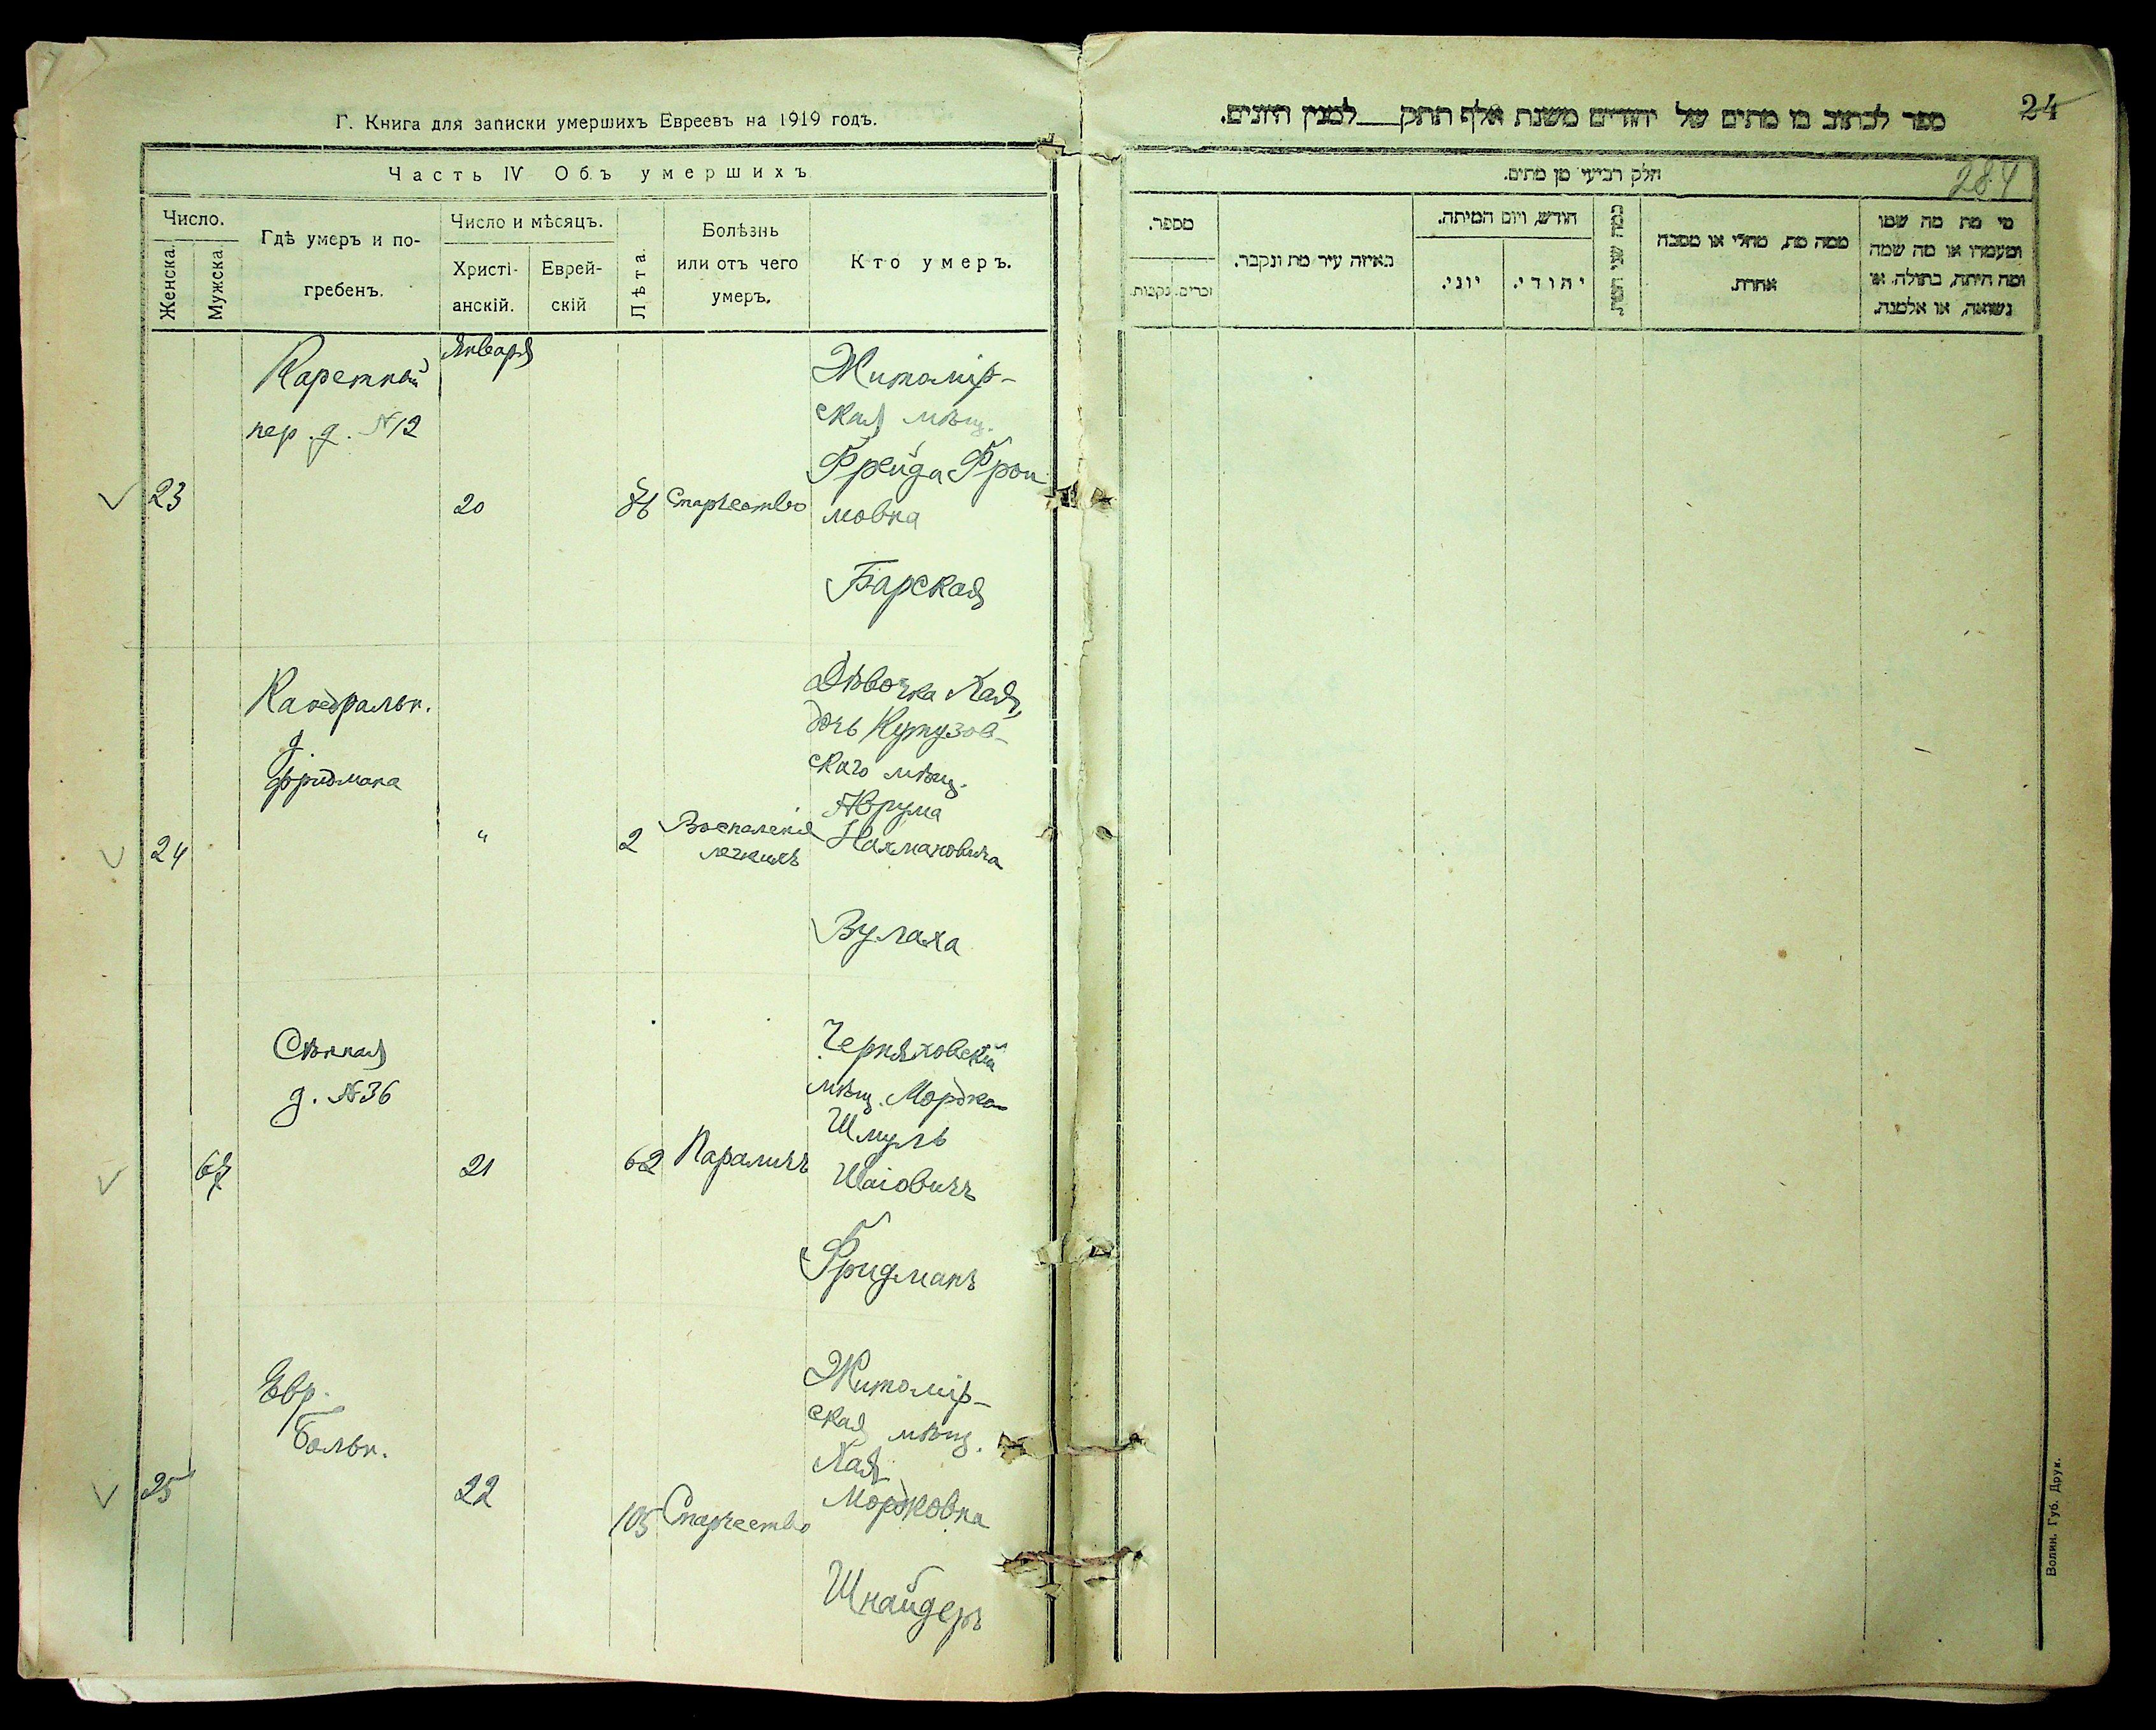 Г. Книга для записки умершихъ Евреевъ на 1919 годъ.
Часть IV Объ умершихъ
Число.
Женска.
Мужска.
Гдѣ умеръ и по-
гребенъ.
Число и мѣсяцъ.
Христі-
анскій.
Еврей-
скій
Лѣта.
Болѣзнь
или отъ чего
умеръ.
Кто умеръ.
Января
Каретный
пер. д. №12
23
20
Старчество
Житомір-
ская мѣщ.
Фрейда Фрои
мовна
Барская
Каѳедральн.
д.
Фридмана
24
"
2
Воспаленіе
легкихъ
Дѣвочка Хая,
дочь Кутузов-
скаго мѣщ.
Аврума
Нахмановича
Вулаха
Сѣнная
д. №36
67
21
62
Параличъ
Черняховскій
мѣщ. Мордко-
Шмуль
Шаіовичъ
Фридманъ
Евр.
Больн.
25
22
105
Старчество
Житомір-
ская мѣщ.
Хая
Мордковна
Шнайдеръ
24
284
ספר לכתוב בו מתים של יהודים משנת אלף תתק__למנין היונים.
חלק רביעי מן מתים.
מי מת מה שמו
ומעמדו או מה שמה
ומה היתה, בתולה. או
נשואה, או אלמנה.
ממה מת, מחלי או מסבה
אחרת.
כמה שני המת
חודש, ויום המיתה.
יהודי.
יוני.
באיזה עיר מת ונקבר.
מספר.
זכרים.
נקבות.
Волин. Губ. Друк.